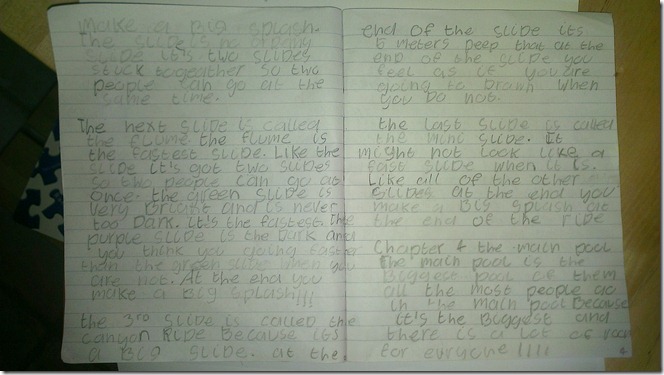 make a BIG splash.
The slide is no ordany
slide it's two slides
stuck togeather so two
people can go at the
same time.
The next slide is called
the flume the flume is
the fastest slide. Like the
slide it's got two slides
so two people can go at
once. the green slide is
very bright and is never
too Dark. it's the fastest. the
purple slide is the Dark and
you think you going faster
than the green slide when you
are not. At the end you
make a BIG splash!!!
the 3rd slide is called the
canyon Ride Because its
a BIG slide. at the
end of the slide its
6 meters Deep that at the
end of the slide you
feel as if you are
going to Drown when
you Do not.
the last slide is called
the mini slide. It
might not look like a
fast slide when it is.
Like all of the other
slides at the end you
make a BIG splash at
the end of the ride
Chapter 4 the main pool
The main pool is the
Biggest pool of them
all the most people go
in the main pool Because
it's the Biggest and
there is a lot of room
for euryone !!!!